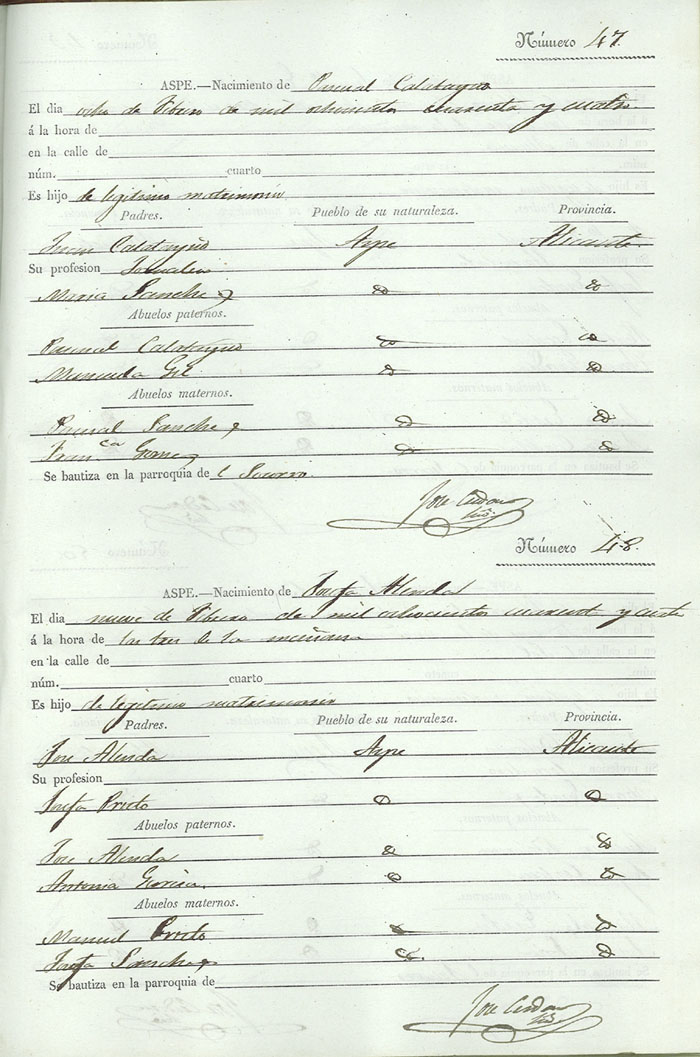 Número 47.
ASPE.—Nacimiento de Pascual Calatayud
El dia ocho de Febrero de mil ochocientos cuarenta y cuatro
á la hora de
en la calle de
núm. cuarto
Es hijo de legitimo matrimonio
Padres. Pueblo de su naturaleza. Provincia.
Juan Calatayud Aspe Alicante
Su profesion Jornalero
Maria Sanchez do do
Abuelos paternos.
Pascual Calatayud do do
Manuela Gil do do
Abuelos maternos.
Pascual Sanchez do do
Fran.ca Gomez do do
Se bautiza en la parroquia de l Socorro.
Jose Cerdan
Número 48.
ASPE.—Nacimiento de Josefa Alenda
El dia nueve de Febrero de mil ochocientos cuarenta y cuatro
á la hora de las tres de la mañana
en la calle de
núm. cuarto
Es hijo de legitimo matrimonio
Padres. Pueblo de su naturaleza. Provincia.
Jose Alenda Aspe Alicante
Su profesion
Josefa Prieto do do
Abuelos paternos.
Jose Alenda do do
Antonia do do
Abuelos maternos.
Manuel Prieto do do
Josefa Sanchez do do
Se bautiza en la parroquia de
Jose Cerdan